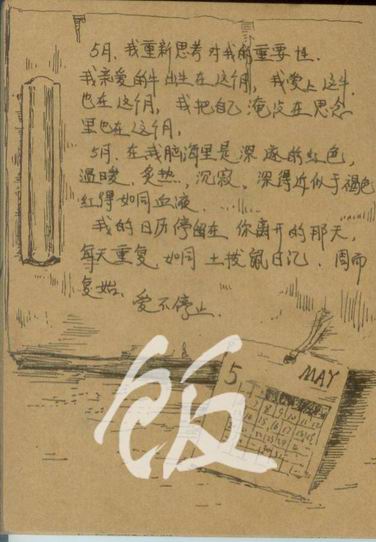 5月,我重新思考对我的重要性.
我亲爱的牛出生在这个月,我爱上这牛
也在这个月,我把自己淹没在思念
里也在这个月,
5月.在我脑海里是深邃的红色,
温暖、炙热,沉寂、深得近似于褐色
红得如同血液...
我的日历停留在 你离开的那天,
每天重复.如同 土拨鼠日记、周而
复始.
爱不停止.
饭
5 MAY